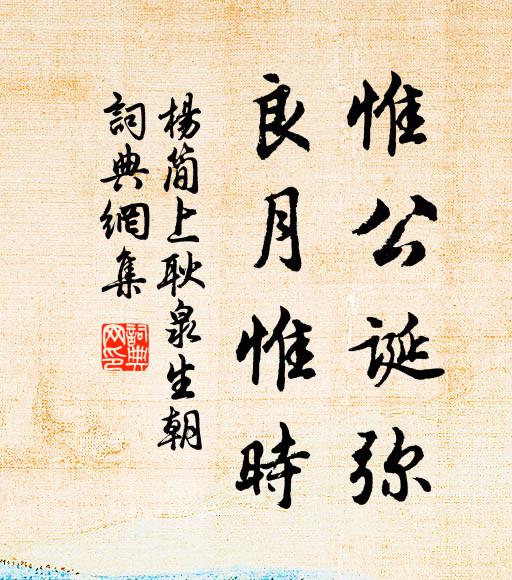 惟公誕弥
良月惟時
楊简上耿泉生朝
詞典網集
詞典网印